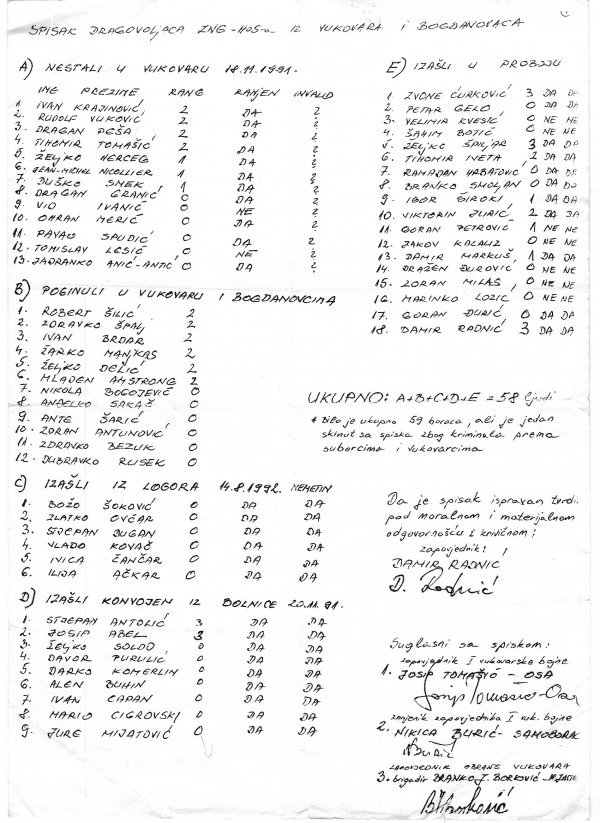 SPISAK DRAGOVOLJACA ZNG-HOS-a IZ VUKOVARA i BOGDANOVACA
A) NESTALI U VUKOVARU 18.11.1991.
IME PREZIME RANG RANJEN INVALID
1 IVAN KRAJINOVIĆ 2 DA ?
2. RUDOLF VUKOVIĆ 2 DA ?
3. DRAGAN PEŠA 2 DA ?
4. TIHOMIR TOMAŠIĆ 2 DA ?
5. ŽELJKO HERCEG 1 DA ?
6. JEAN-MICHEL NICOLLIER 1 DA ?
7. DUŠKO SMEK 1 DA ?
8. DRAGAN GRANIĆ 0 DA ?
9. VID IVANIĆ 0 NE ?
10. OMRAN MERIĆ 0 DA ?
11. PAVAO SPUDIĆ 0 DA ?
12. TOMISLAV LESIĆ 0 NE ?
13. JADRANKO ANIĆ-ANTIĆ 0 DA ?
B) POGINULI U VUKOVARU I BOGDANOVCIMA
1. ROBERT ŠILIĆ 2
2. ZDRAVKO ŠPALJ 2
3. IVAN BRDAR 2
4. ŽARKO MANJKAS 2
5. ŽELJKO DELIĆ 2
6. MLADEN AMSTRONG 2
7. NIKOLA BOGOJEVIĆ 0
8. ANĐELKO SAKAČ 0
9. ANTE ŠARIĆ 0
10. ZORAN ANTUNOVIĆ 0
11. ZDRAVKO BEZUK 0
12. DUBRAVKO RUSEK 0
C) IZAŠLI IZ LOGORA 14.8.1992. NEMETIN
1. BOŽO ŠOKOVIĆ 0 DA DA
2. ZLATKO OVČAR 0 DA DA
3. STJEPAN DUGAN 0 DA DA
4. VLADO KOVAČ 0 DA DA
5. IVICA ČANČAR 0 DA DA
6. ILIJA AČKAR 0 DA DA
D) IZAŠLI KONVOJEM IZ BOLNICE 20.11.91.
1. STJEPAN ANTOLIĆ 3 DA DA
2. JOSIP ABEL 3 DA DA
3. ŽELJKO SOLDO 0 DA DA
4. DAVOR PURULIĆ 0 DA DA
5. DARKO KOMERLIN 0 DA DA
6. ALEN BUHIN 0 DA DA
7. IVAN CAPAN 0 DA DA
8. MARIO CIGROVSKI 0 DA DA
9. JURE MIJATOVIĆ 0 DA DA
E) IZAŠLI U PROBOJU
1. ZVONE ĆURKOVIĆ 3 DA DA
2. PETAR GELO 0 DA DA
3. VELIMIR KVESIĆ 0 NE NE
4. ŠAHIM BOTIĆ 0 NE NE
5. ŽELJKO ŠPILJAR 3 DA DA
6. TIHOMIR IVETA 2 DA DA
7. RAMADAN 0 DA DA
8. BRANKO SMOLJAN 0 DA DA
9. IGOR ŠIROKI 1 DA DA
10. VIKTORIN JURIĆ 2 DA DA
11. GORAN PETROVIĆ 1 NE NE
12. JAKOV KALAUZ 0 NE NE
13. DAMIR MARKUŠ 1 DA DA
14. DRAŽEN ĐUROVIĆ 0 NE NE
15. ZORAN MILAS 0 NE NE
16. MARINKO LOZIĆ 0 NE NE
17. GORAN ĐURIĆ 0 DA DA
18. DAMIR RADNIĆ 3 DA DA
UKUPNO: A+B+C+D+E = 58 ljudi
* Bilo je ukupno 59 boraca, ali je jedan
skinut sa spiska zbog kriminala prema
suborcima i vukovarcima
Da je spisak ispravan tvrdi
pod moralnom i materijalnom
odgovornošću i krivičnom:
zapovjednik:
DAMIR RADNIĆ
D. Radnić
Suglasni sa spiskom:
zapovjednik I vukovarske bojne
1. JOSIP TOMAŠIĆ - OSA
Josip Tomašić-Osa
zamjenik zapovjednika I vuk. bojne
2. NIKICA BURIĆ-SAMOBORAC
N Burić
ZAPOVJEDNIK OBRANE VUKOVARA
3. brigadir BRANKO J. BORKOVIĆ -
B Borković